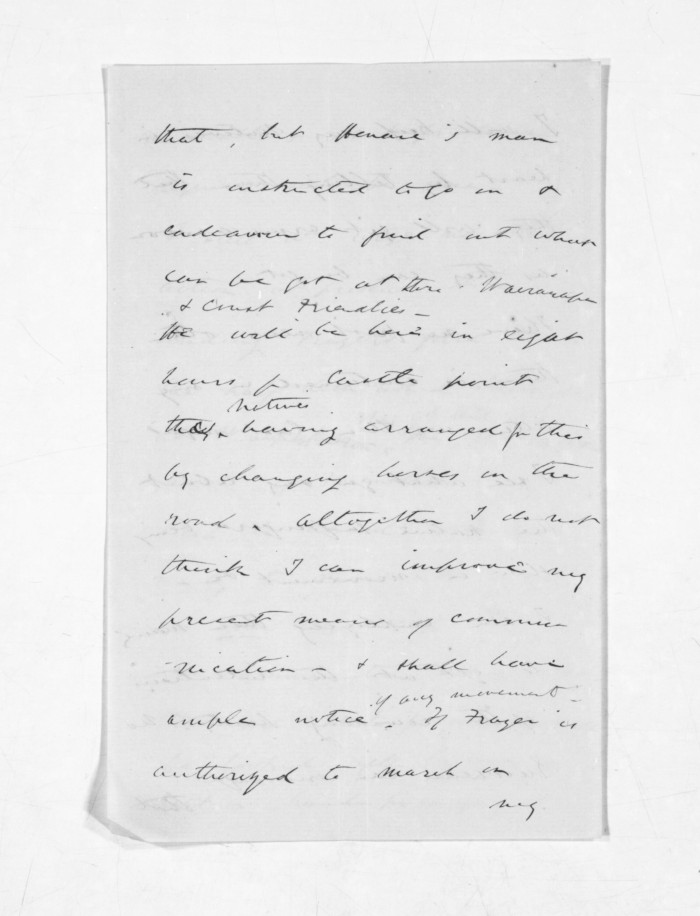 that, but Henare's man
is instructed to go on &
endeavour to find out what
can be got at there - Wairarapa
& Coast Friendlies -
He will be here in eight
hours fr Castle point
natives
they, having arranged for this
by changing horses on the
road. Altogether I do not
think I can improve my
present means of commu-
-nication - & shall have
of any movement -
ample notice. If Frazer is
authorized to march on
my